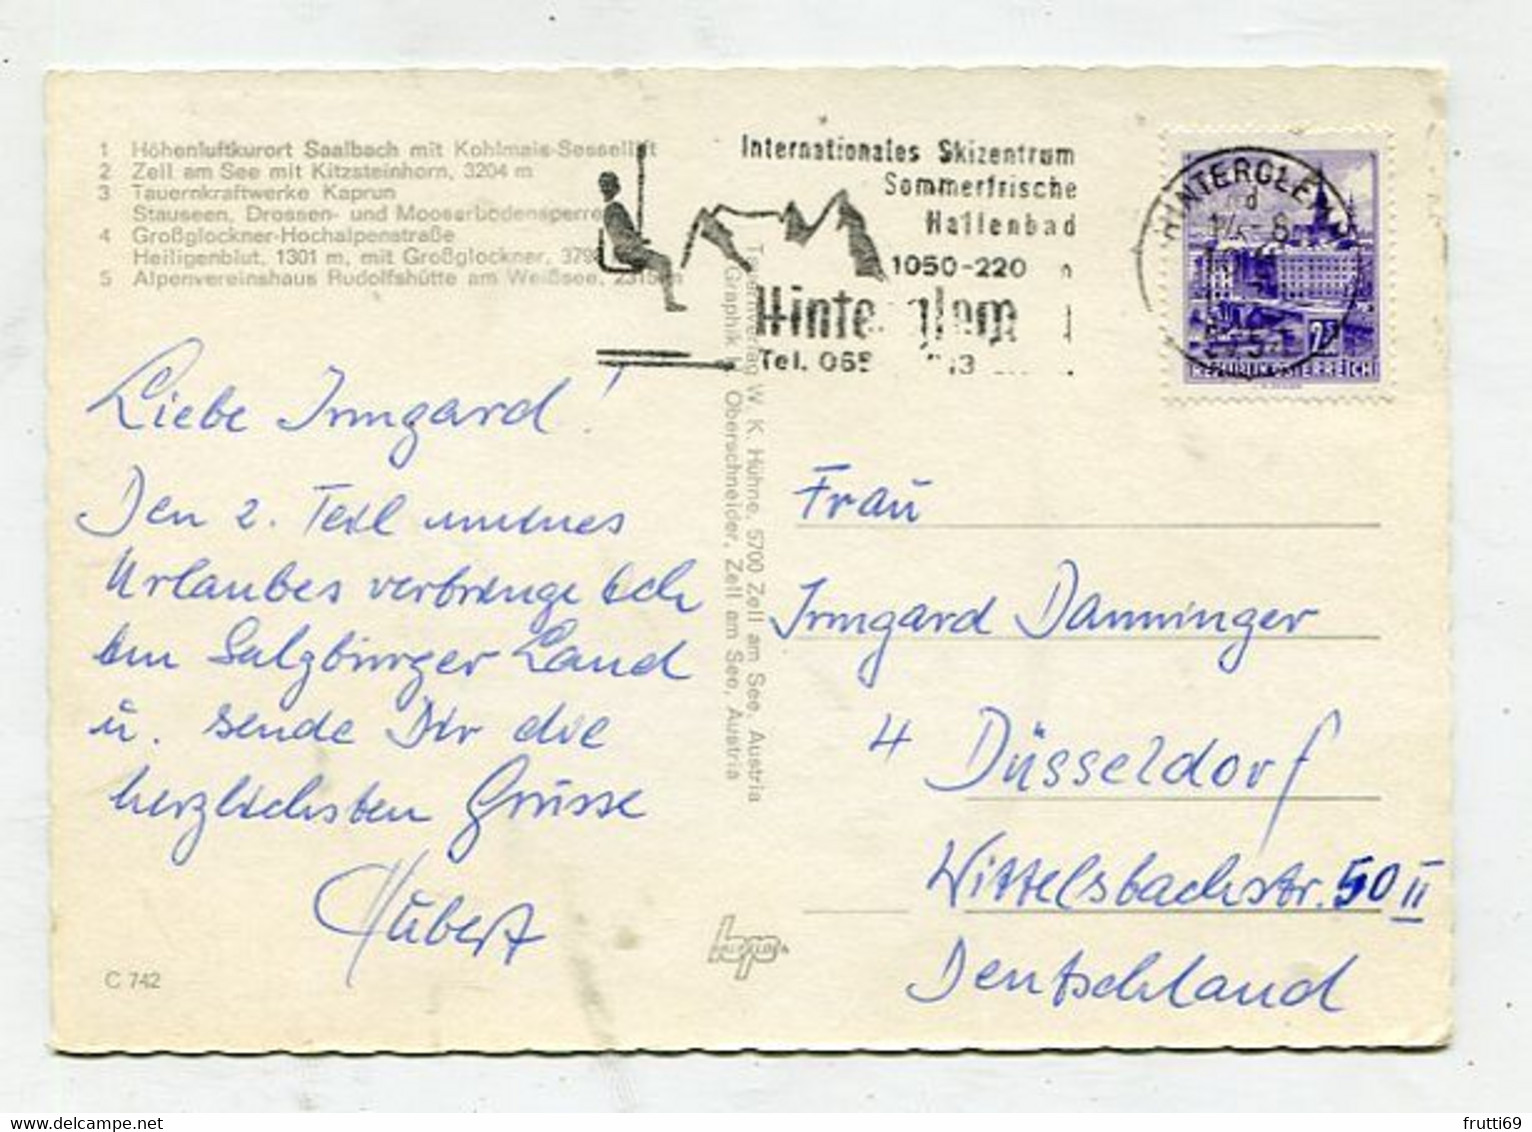 1 Höhenluftkurort Saalbach mit Kohlmais-Sessellift
2 Zell am See mit Kitzsteinhorn, 3204 m
3 Tauernkraftwerke Kaprun
Stauseen, Drossen- und Mooserbodensperre
4 Großglockner-Hochalpenstraße
Heiligenblut, 1301 m, mit Großglockner, 379
5 Alpenvereinshaus Rudolfshütte am Weißsee, 2315 m
Internationales Skizentrum
Sommerfrische
Hallenbad
1050-220
Hinterglem
Tel. 065
HINTERGLEMM
5754
REPUBLIK ÖSTERREICH
Liebe Irmgard!
Den 2. Teil meines
Urlaubes verbringe ich
im Salzburger Land
u. sende Dir die
herzlichsten Grüsse
Hubert
C 742
Tauernverlag W. K. Hühne, 5700 Zell am See, Austria
Graphik H. Oberschneider, Zell am See, Austria
Frau
Irmgard Danninger
4 Düsseldorf
Wittelsbachstr. 50 II
Deutschland
frutti69